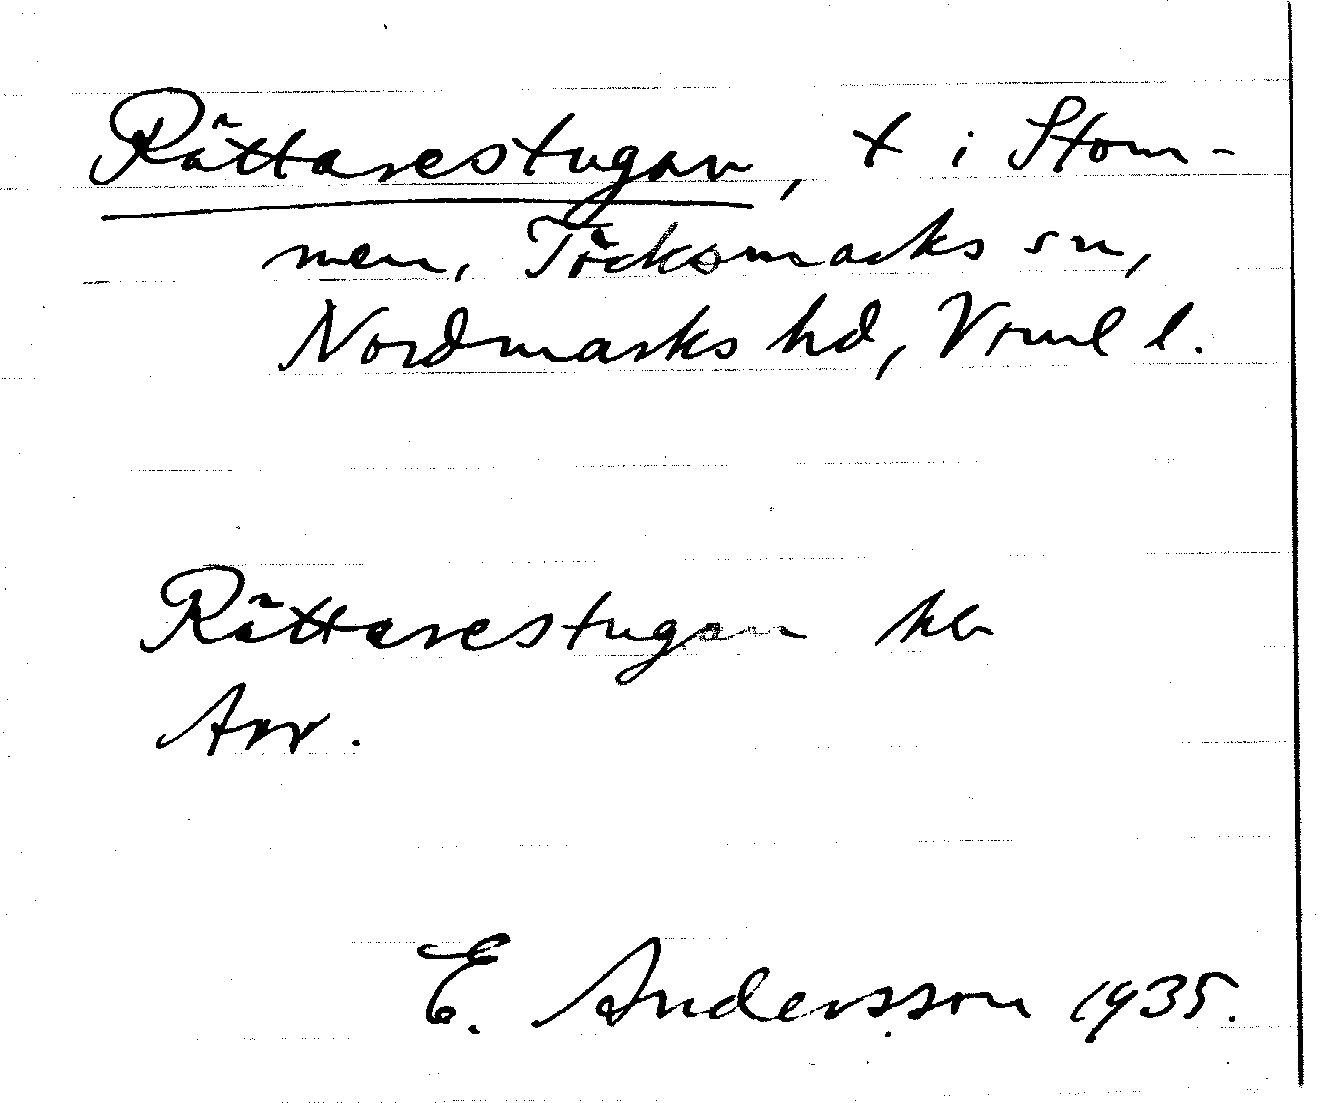 Rättarestugan, t i Stom-
men, Töcksmarks sn,
Nordmarks hd, Vrml l.
Rättarestugan hb
Arr.
E. Andersson 1935.